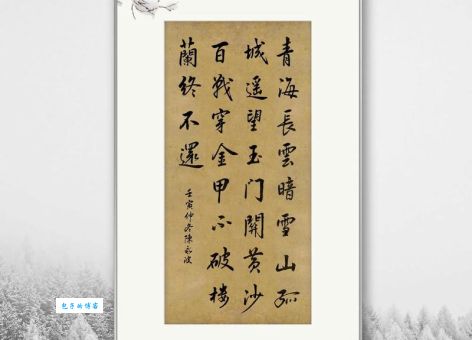 青海長雲暗雪山孤
城遥望玉门關黄沙
百戰穿金甲不破楼
蘭終不還
壬寅仲冬陳永波
包子的博客